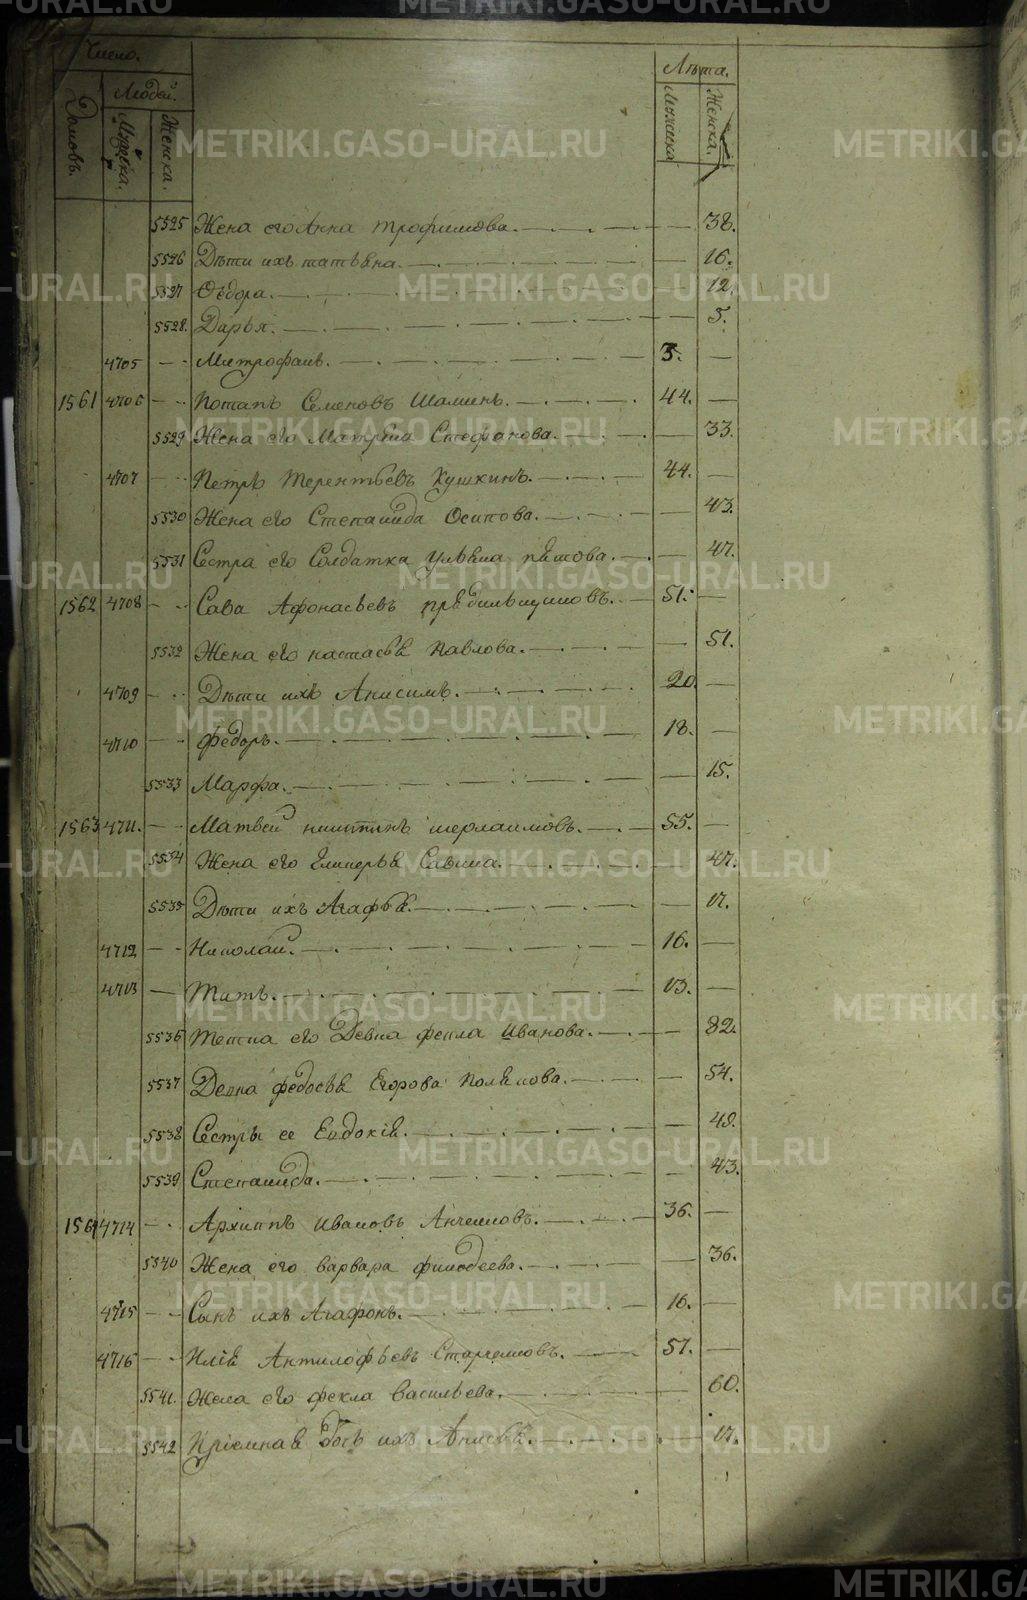 Число.
Лѣта.
Людей.
Домовъ.
Мужеска.
Женска.
Мужеска
Женска.
5525 Жена его Анна Трофимова. 38.
5526 Дѣти ихъ татьяна. 16.
5527 Ѳедора. 12
5528. Дарья. 5.
4705 Митрофанъ. 3.
1561 4706 Потапъ Семеновъ Шаминъ. 44.
5529 Жена его Матрена Стефанова. 33.
4707 Петръ Терентьевъ Кушкинъ. 44.
5530 Жена его Степанида Осипова. 43.
5531 Сестра его Солдатка Ульяна 47.
1562 4708 Сава Афонасьевъ 51.
5532 Жена его настасья Павлова. 51.
4709 Дѣти ихъ Анисимъ. 20.
4710 Федоръ. 18.
5533 Марфа. 15.
1563 4711. Матвей никитинъ 55.
5534 Жена его Савина. 47.
5535 Дѣти ихъ Агафья. 17.
4712 Николай. 16.
4713 Титъ. 13.
5536 Тетка его Девка фекла Иванова. 82.
5537 Девка федосья Егорова 54.
5538 Сестры ее Евдокія. 48.
5539 Степанида. 43.
1564 4714 Архипъ Ивановъ 36.
5540 Жена его варвара 36.
4715 Сынъ ихъ Агафонъ. 16.
4716 Илія 57.
5541. Жена его фекла Васильева. 60.
5542 Пріемная дочь ихъ Анисья. 17.
METRIKI.GASO-URAL.RU